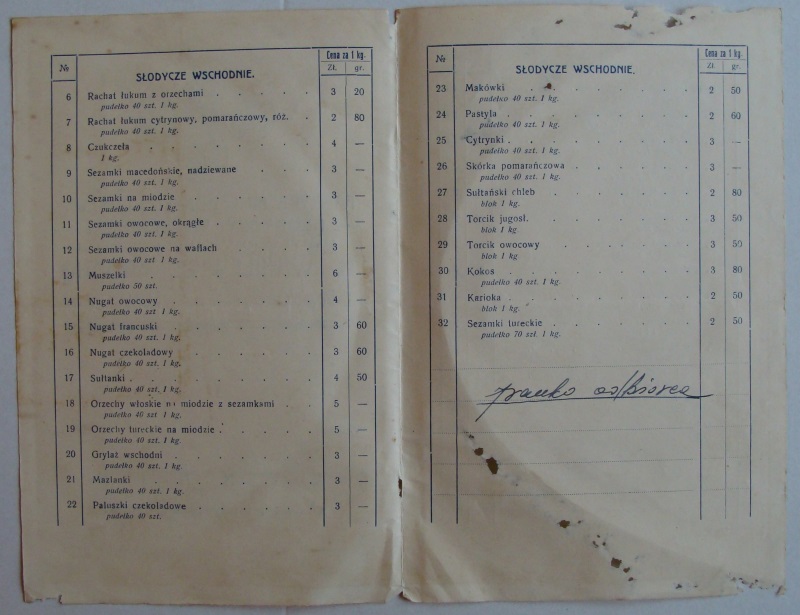 № SŁODYCZE WSCHODNIE. Cena za 1 kg.
Zł. gr.
6 Rachat łukum z orzechami 3 20
pudełko 40 szt. 1 kg.
7 Rachat łukum cytrynowy, pomarańczowy, róż. 2 80
pudełko 40 szt. 1 kg.
8 Czukczela 4 —
1 kg.
9 Sezamki macedońskie, nadziewane 3 —
pudełko 40 szt. 1 kg.
10 Sezamki na miodzie 3 —
pudełko 40 szt. 1 kg.
11 Sezamki owocowe, okrągłe 3 —
pudełko 40 szt. 1 kg.
12 Sezamki owocowe na waflach 3 —
pudełko 40 szt. 1 kg.
13 Muszelki 6 —
pudełko 50 szt.
14 Nugat owocowy 4 —
pudełko 40 szt. 1 kg.
15 Nugat francuski 3 60
pudełko 40 szt. 1 kg.
16 Nugat czekoladowy 3 60
pudełko 40 szt. 1 kg.
17 Sułtanki 4 50
pudełko 40 szt. 1 kg.
18 Orzechy włoskie na miodzie z sezamkami 5 —
pudełko 40 szt 1 kg.
19 Orzechy tureckie na miodzie 5 —
pudełko 40 szt. 1 kg.
20 Grylaż wschodni 3 —
pudełko 40 szt 1 kg.
21 Mazianki 3 —
pudełko 40 szt. 1 kg.
22 Pałuszki czekoladowe 3 —
pudełko 40 szt.
№ SŁODYCZE WSCHODNIE. Cena za 1 kg.
Zł gr.
23 Makówki 2 50
pudełko 40 szt. 1 kg.
24 Pastyla 2 60
pudełko 40 szt. 1 kg.
25 Cytrynki 3 —
pudełko 40 szt. 1 kg.
26 Skórka pomarańczowa 3 —
pudełko 40 szt. 1 kg.
27 Sułtański chleb 2 80
blok 1 kg.
28 Torcik jugosł. 3 50
blok 1 kg
29 Torcik owocowy 3 50
blok 1 kg
30 Kokos 3 80
pudełko 40 szt. 1 kg.
31 Karioka 2 50
blok 1 kg.
32 Sezamki tureckie 2 50
pudełko 70 szt. 1 kg.
franko odbiorca